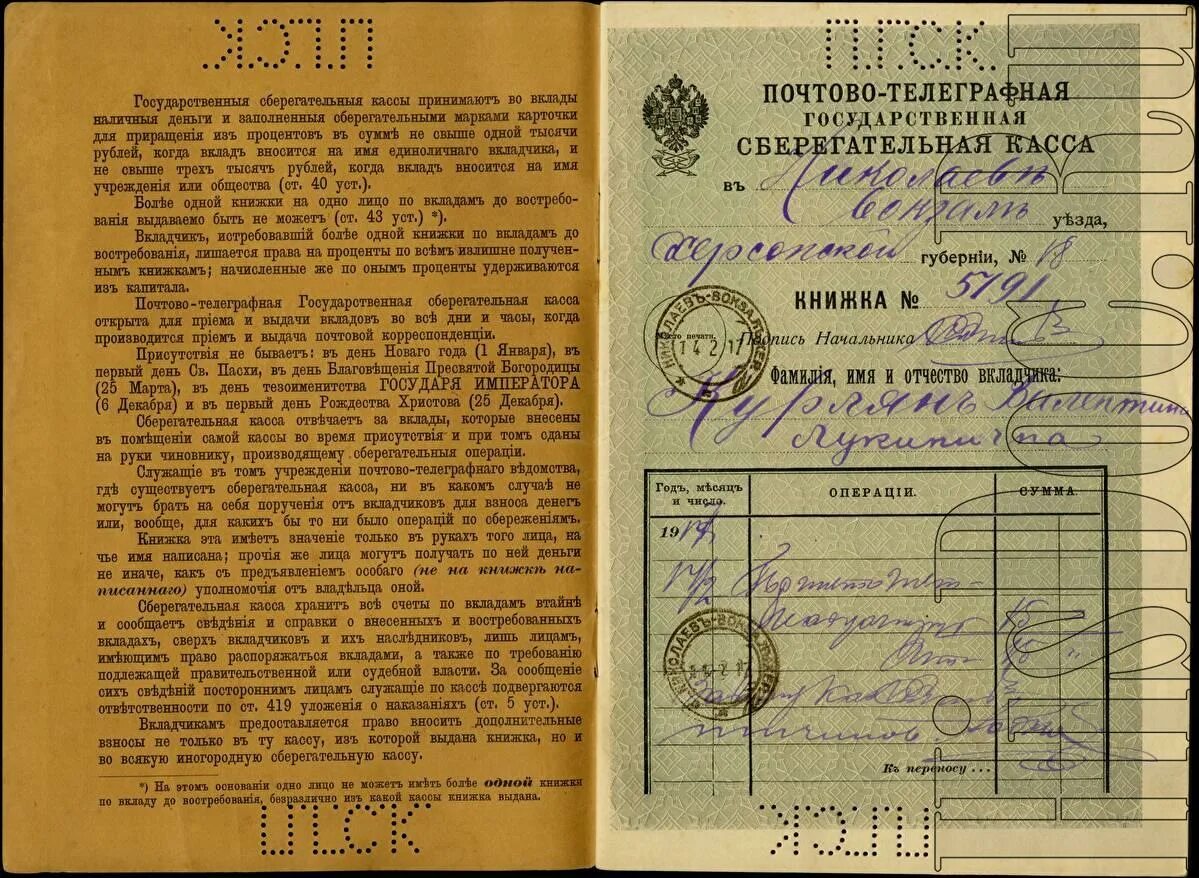 П.Г.С.К.
Государственныя сберегательныя кассы принимаютъ во вклады
наличныя деньги и заполненныя сберегательными марками карточки
для приращенія изъ процентовъ въ суммѣ не свыше одной тысячи
рублей, когда вкладъ вносится на имя единоличнаго вкладчика, и
не свыше трехъ тысячъ рублей, когда вкладъ вносится на имя
учрежденія или общества (ст. 40 уст.).
Болѣе одной книжки на одно лицо по вкладамъ до востребо-
ванія выдаваемо быть не можетъ (ст. 43 уст.) *).
Вкладчикъ, истребовавшій болѣе одной книжки по вкладамъ до
востребованія, лишается права на проценты по всѣмъ излишне получен-
нымъ книжкамъ; начисленные же по онымъ проценты удерживаются
изъ капитала.
Почтово-телеграфная Государственная сберегательная касса
открыта для пріема и выдачи вкладовъ во всѣ дни и часы, когда
производится пріемъ и выдача почтовой корреспонденціи.
Присутствія не бываетъ: въ день Новаго года (1 Января), въ
первый день Св. Пасхи, въ день Благовѣщенія Пресвятой Богородицы
(25 Марта), въ день тезоименитства ГОСУДАРЯ ИМПЕРАТОРА
(6 Декабря) и въ первый день Рождества Христова (25 Декабря).
Сберегательная касса отвѣчаетъ за вклады, которые внесены
въ помѣщеніи самой кассы во время присутствія и при томъ сданы
на руки чиновнику, производящему сберегательныя операціи.
Служащіе въ томъ учрежденіи почтово-телеграфнаго вѣдомства,
гдѣ существуетъ сберегательная касса, ни въ какомъ случаѣ не
могутъ брать на себя порученія отъ вкладчиковъ для взноса денегъ
или, вообще, для какихъ бы то ни было операцій по сбереженіямъ.
Книжка эта имѣетъ значеніе только въ рукахъ того лица, на
чье имя написана; прочія же лица могутъ получать по ней деньги
не иначе, какъ съ предъявленіемъ особаго (не на книжкѣ на-
писаннаго) уполномочія отъ владѣльца оной.
Сберегательная касса хранитъ всѣ счеты по вкладамъ втайнѣ
и сообщаетъ свѣдѣнія и справки о внесенныхъ и востребованныхъ
вкладахъ, сверхъ вкладчиковъ и ихъ наслѣдниковъ, лишь лицамъ,
имѣющимъ право распоряжаться вкладами, а также по требованію
подлежащей правительственной или судебной власти. За сообщеніе
сихъ свѣдѣній постороннимъ лицамъ служащіе по кассѣ подвергаются
отвѣтственности по ст. 419 уложенія о наказаніяхъ (ст. 5 уст.).
Вкладчикамъ предоставляется право вносить дополнительные
взносы не только въ ту кассу, изъ которой выдана книжка, но и
во всякую иногородную сберегательную кассу.
*) На этомъ основаніи одно лицо не можетъ имѣть болѣе одной книжки
по вкладу до востребованія, безразлично изъ какой кассы книжка выдана.
П.Г.С.К.
П.Г.С.К.
ПОЧТОВО-ТЕЛЕГРАФНАЯ
ГОСУДАРСТВЕННАЯ
СБЕРЕГАТЕЛЬНАЯ КАССА
въ Николаевѣ
Вокзалъ уѣзда,
Херсонской губерніи, № 18
КНИЖКА № 5791
Мѣсто печати.
НИКОЛАЕВЪ-ВОКЗАЛЪ ХЕР.
14 2 17
Подпись Начальника
Фамилія, имя и отчество вкладчика:
Курлянъ Валентинъ
Лукинична
Годъ, мѣсяцъ и число.
ОПЕРАЦІИ.
СУММА.
1917
15
НИКОЛАЕВЪ-ВОКЗАЛЪ ХЕР.
Къ переносу ...
П.Г.С.К.